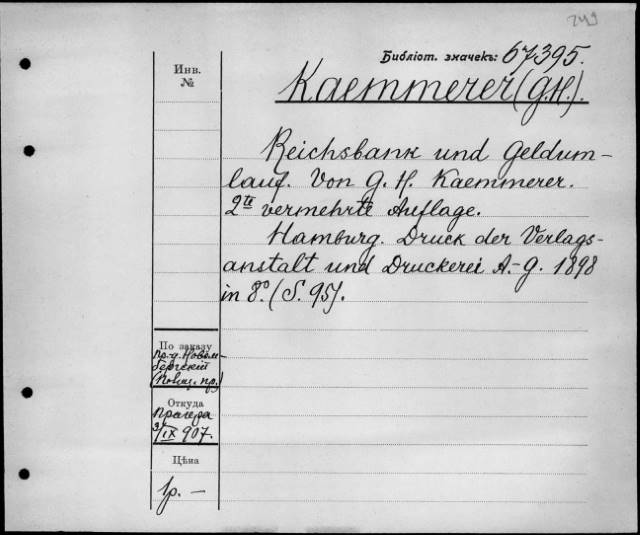 249
Библiот. значекъ: 67395.
Инв.
№
Kaemmerer (G.H.).
Reichsbank und Geldum-
lauf. Von G. H. Kaemmerer.
2te vermehrte Auflage.
Hamburg. Druck der Verlags-
anstalt und Druckerei A.-G. 1898
in 8°. (S. 95).
По заказу
Пр-д. Новом-
бергскій
(Полиц. пр.)
Откуда
Прагера
3/IX 907.
Цѣна
1р. -